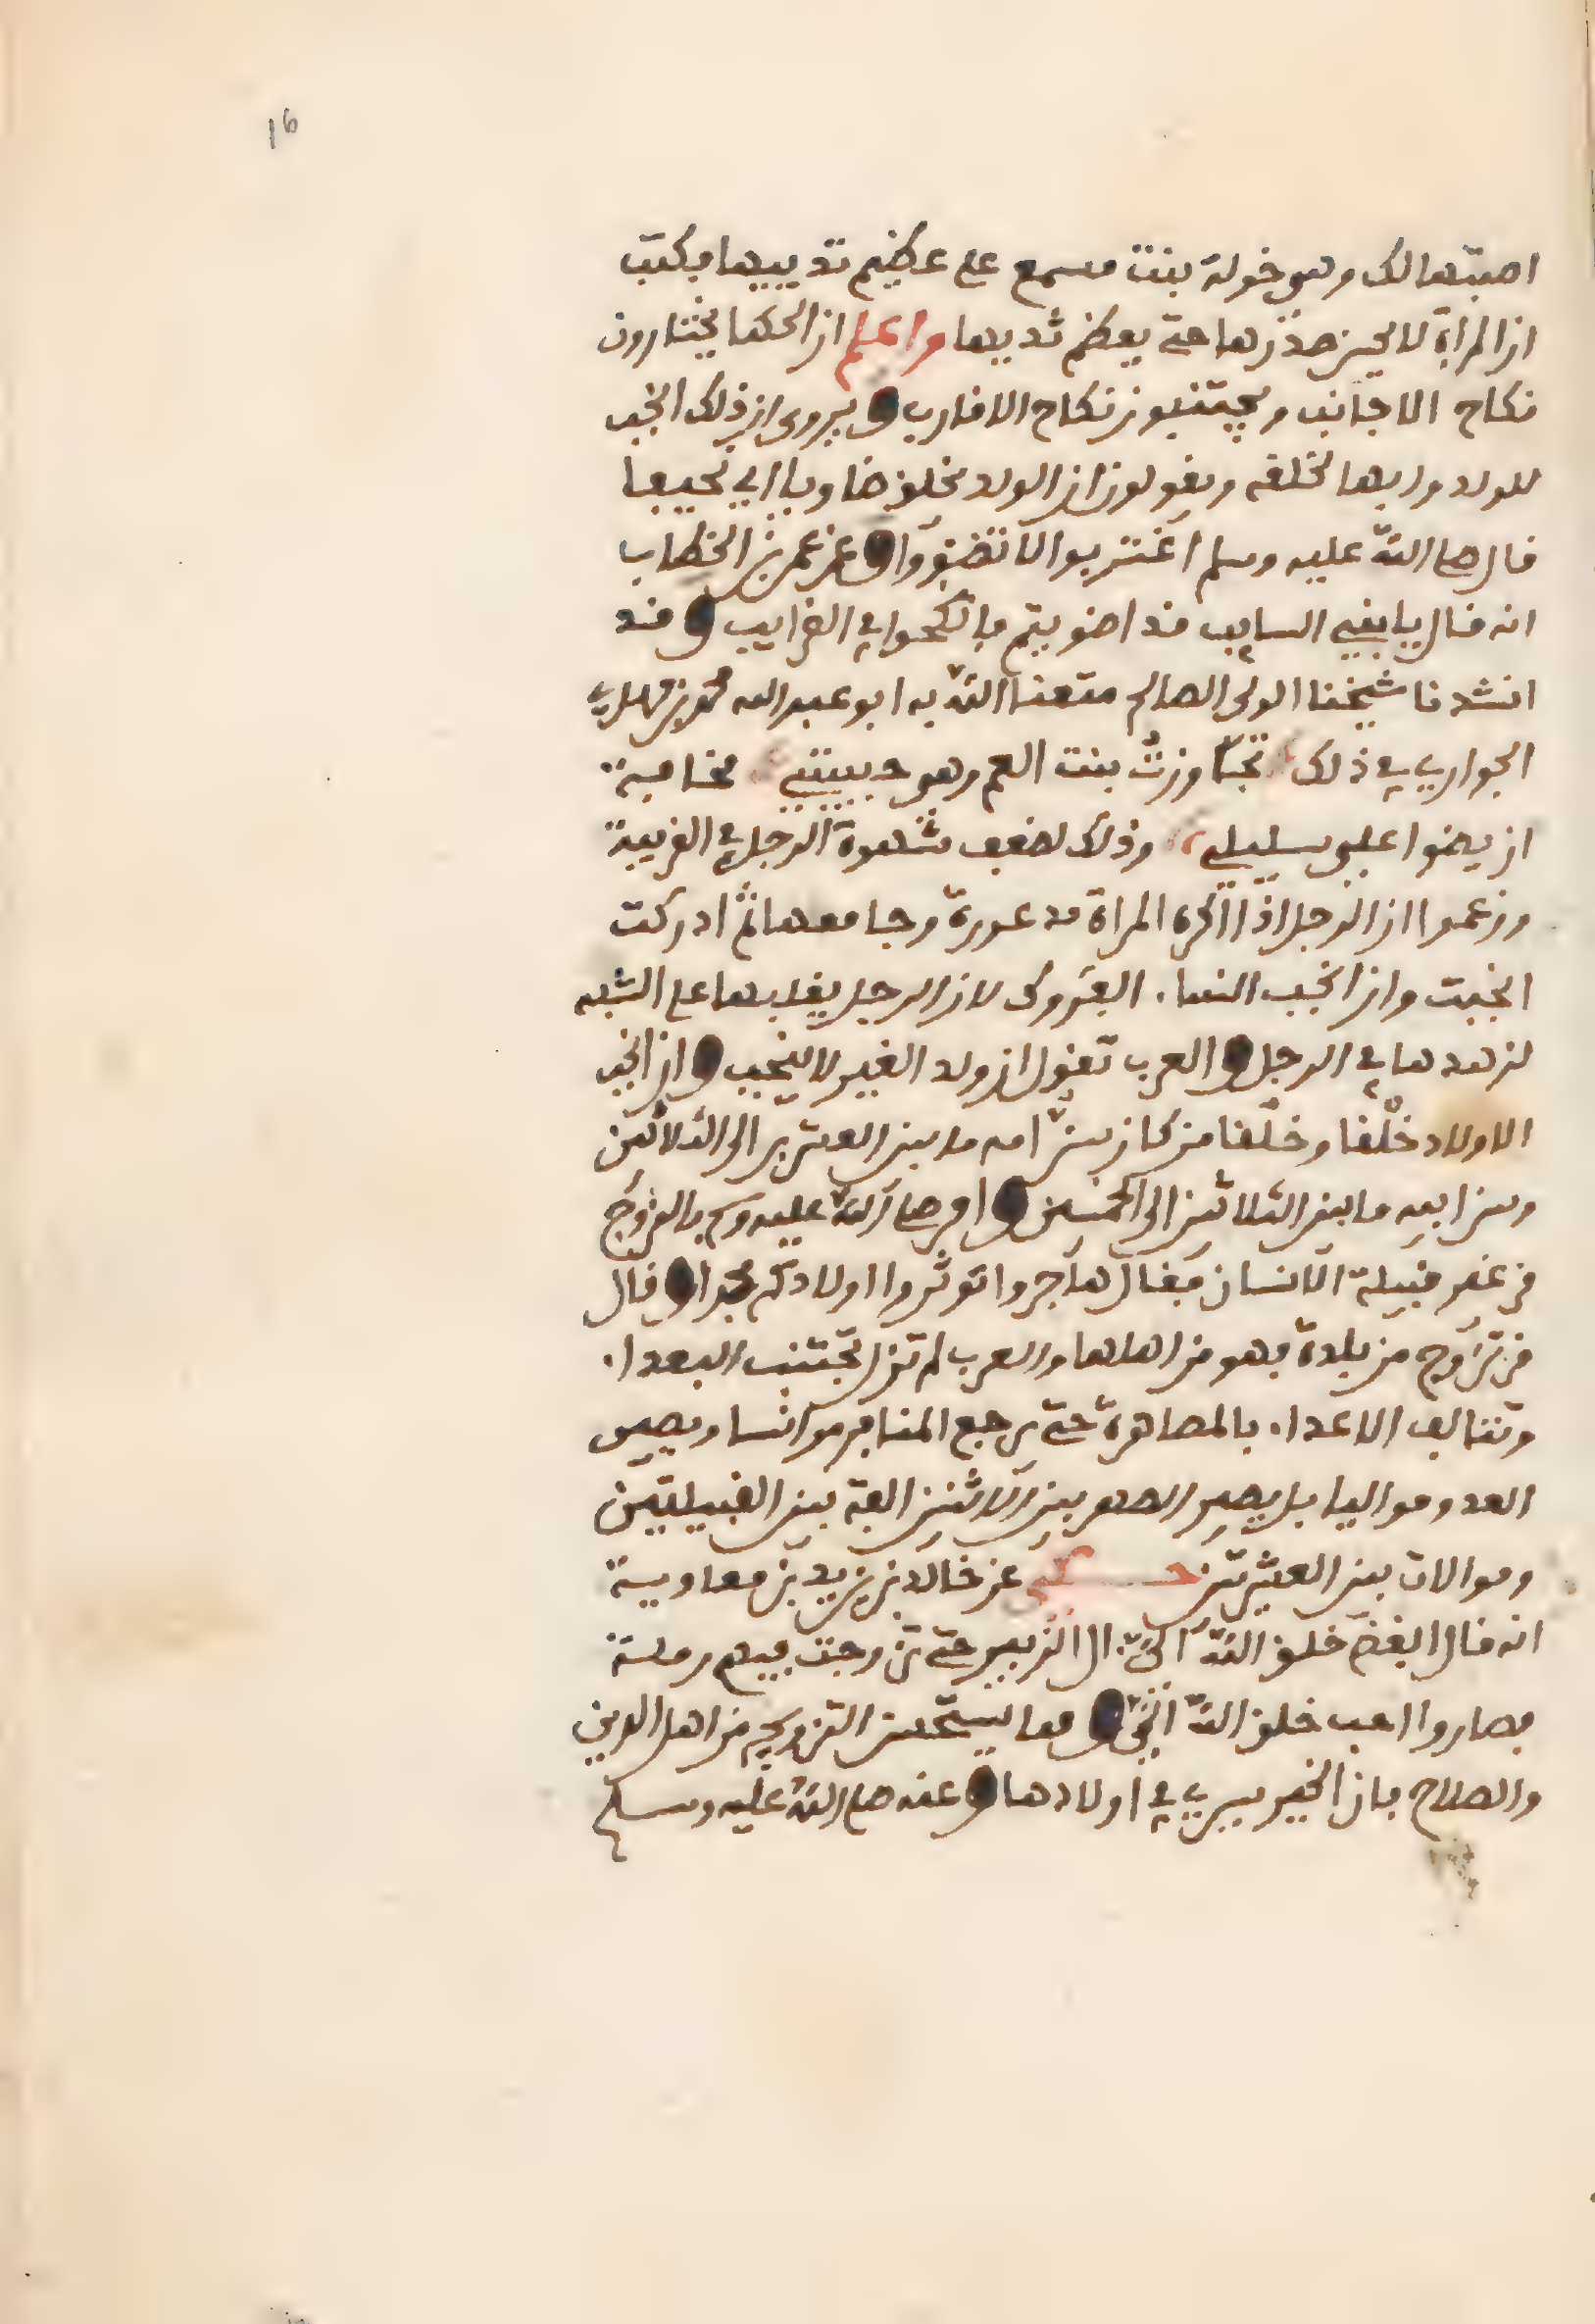 16
اصبتها لك وهي خولة بنت مسمع على عظيم ثدييها فكتب
ان المراة لا يحسن صدرها حتى يعظم ثدييها واعلم ان الحكما يختارون
نكاح الاجانب ويجتنبون نكاح الاقارب ويروى ان ذلك انجب
للولد وابها لخلقه ويقولون ان الولد يخلق ضاويا اي نحيفا
قال صلى الله عليه وسلم اغتربوا لا تضووا وعن عمر بن الخطاب
انه قال يا بني السايب قد اضويتم فانكحوا في الغرايب وقد
انشدنا شيخنا الولي الصالح متعنا الله به ابو عبد الله محمد بن
الجواري في ذلك تجاوزت بنت العم وهي حبيبتي مخافة
ان يضوا علي سليلي وذلك لضعف شهوة الرجل في القريبة
وزعموا ان الرجل اذا اكره المراة مذعورة وجامعها ثم ادركت
انجبت وان انجب النساء الفروك لان الرجل يغلبها على الشبه
لزهدها في الرجل والعرب تقول ان ولد الغير لا ينجب وان انجب
الاولاد خلقا وخلقا من كان سن امه ما بين العشرين الى الثلاثين
وسن ابيه ما بين الثلاثين الى الخمسين وامر صلى الله عليه وسلم بالتزوج
من غير قبيلة الانسان فقال هاجروا تورثوا اولادكم مجدا وقال
من تزوج من بلدة فهو من اهلها والعرب لم تزل تجتنب البعداء
وتتالف الاعداء بالمصاهرة حتى يرجع المنافر موانسا ويصير
العدو مواليا بل يصير الصهر بين الاثنين الفة بين القبيلتين
وموالات بين العشيرتين حكي عن خالد بن يزيد بن معاوية
انه قال ابغض خلق الله الي ال الزبير حتى تزوجت فيهم رملة
فصاروا احب خلق الله الي ومما يستحسن التزويج من اهل الدين
والصلاح فان الخير يسري في اولادها وعنه صلى الله عليه وسلم